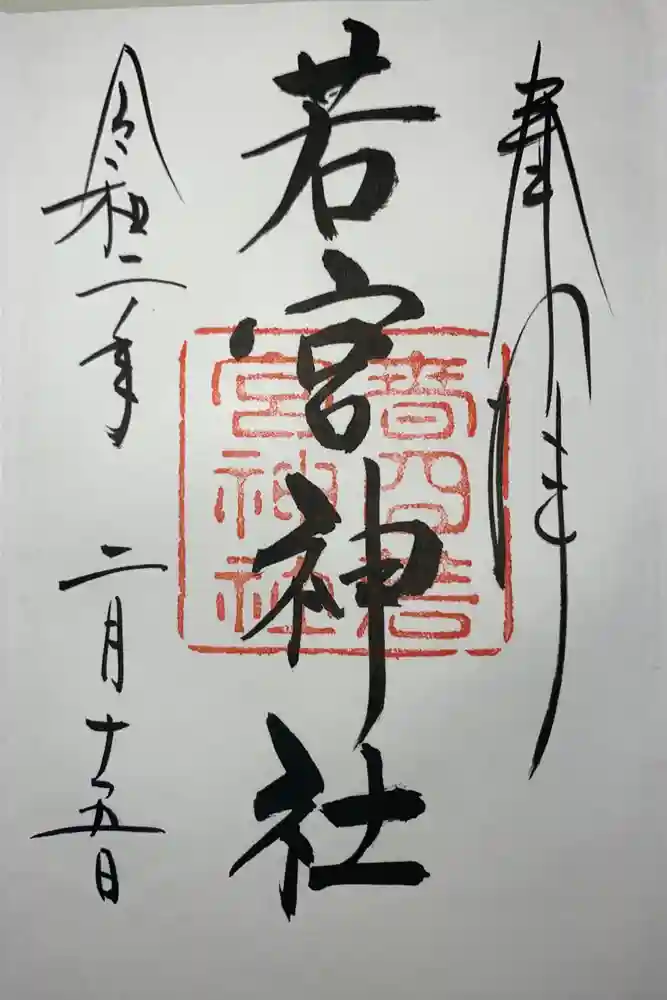 奉拝
若宮神社
春日若
宮神社
令和二年 二月十五日